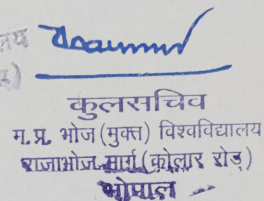 लय
कुलसचिव
म.प्र. भोज (मुक्त) विश्वविद्यालय
राजाभोज मार्ग (कोलार रोड़)
भोपाल